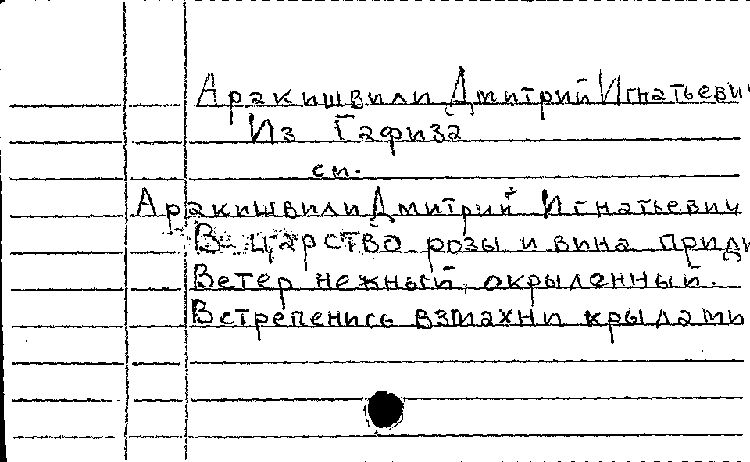 Аракишвили Дмитрий Игнатьеви
Из Гафиза
см.
Аракишвили Дмитрий Игнатьевич
В царство розы и вина прид
Ветер нежный, окрыленный.
Встрепенись взмахни крылами